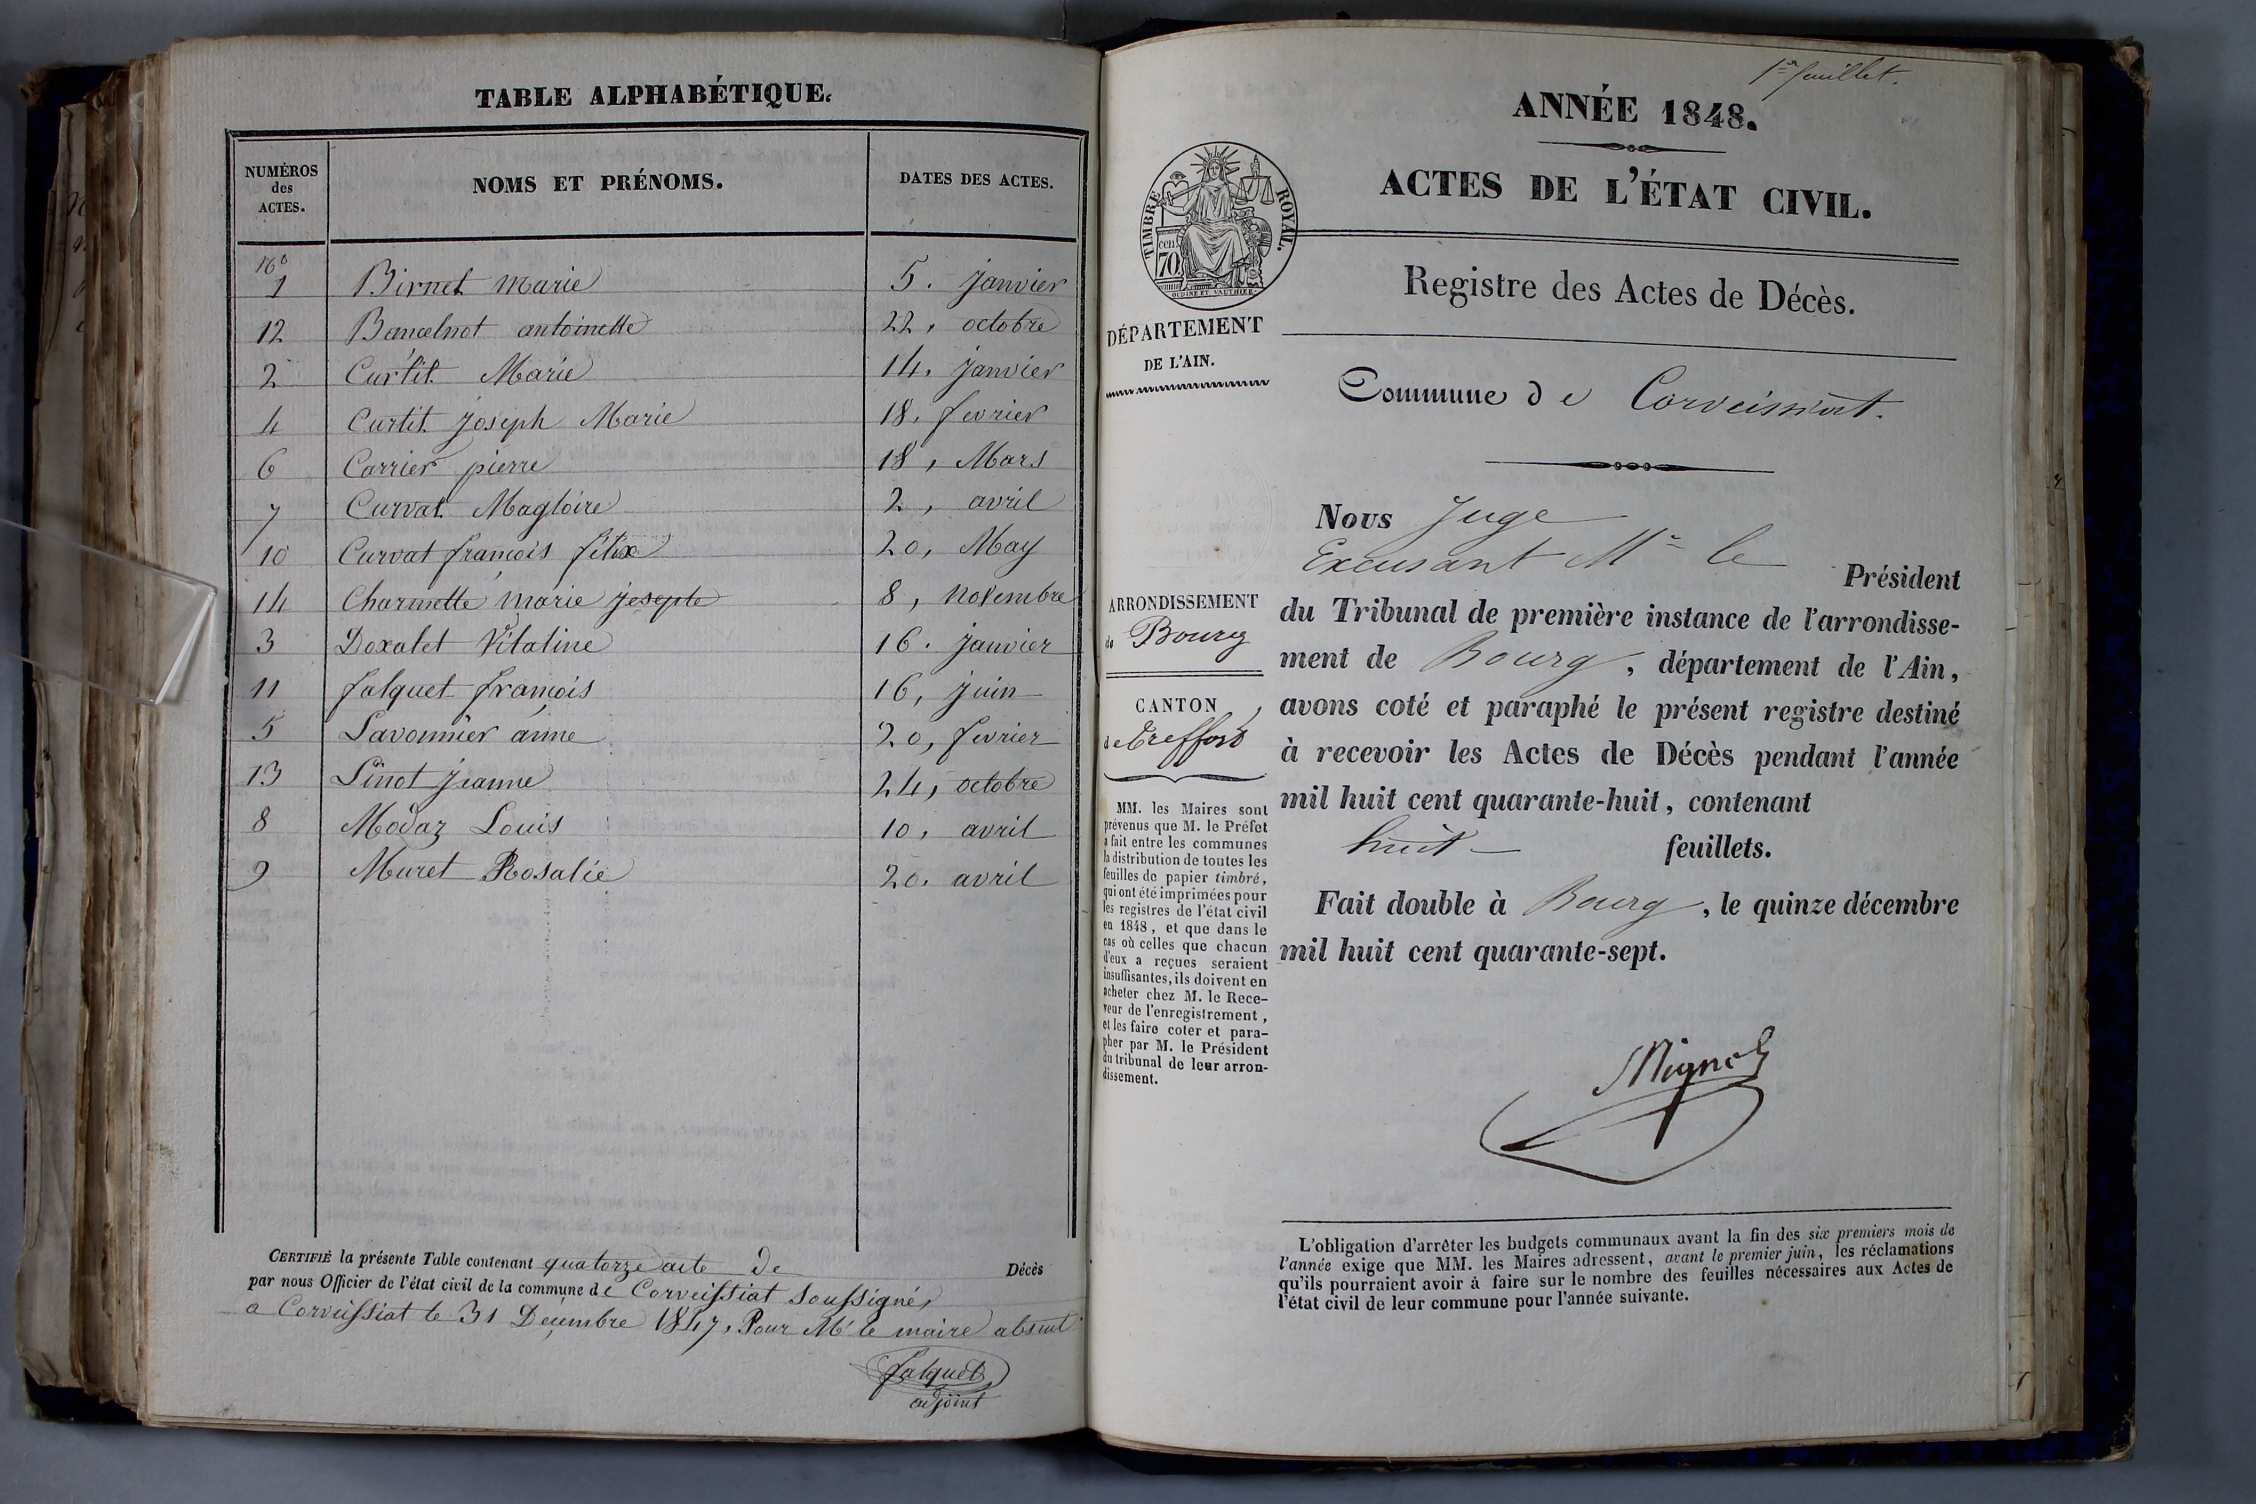 TABLE ALPHABÉTIQUE.
NUMÉROS des ACTES. NOMS ET PRÉNOMS. DATES DES ACTES.
1 Birnet Marie 5. janvier
12 antoinette 22, octobre
2 Curtit Marie 14. janvier
4 Curtit joseph Marie 18. fevrier
6 Carrier pierre 18, Mars
7 Curvat Magloire 2, avril
10 Curvat françois félix 20, May
14 Charmette marie josephe 8, novembre
3 Doxalet Vitaline 16. janvier
11 falquet françois 16, juin
5 Lavonnier anne 20, fevrier
13 Linot jeanne 24, octobre
8 Modaz Louis 10, avril
9 Muret Rosalie 20. avril
CERTIFIÉ la présente Table contenant quatorze acte de Décès
par nous Officier de l'état civil de la commune de Corveissiat soussigné,
a Corveissiat le 31 Décembre 1847, Pour Mr le maire absent
falquet
adjoint
1er feuillet.
ANNÉE 1848.
ACTES DE L'ÉTAT CIVIL.
TIMBRE ROYAL.
cen 70
OUDINE ET VAUTHIER
Registre des Actes de Décès.
DÉPARTEMENT
DE L'AIN.
Commune de Corveissiat.
Nous Juge
Excusant Mr le Président
du Tribunal de première instance de l'arrondisse-
ment de Bourg, département de l'Ain,
avons coté et paraphé le présent registre destiné
à recevoir les Actes de Décès pendant l'année
mil huit cent quarante-huit, contenant
huit feuillets.
Fait double à Bourg, le quinze décembre
mil huit cent quarante-sept.
ARRONDISSEMENT
de Bourg
CANTON
de Treffort
MM. les Maires sont
prévenus que M. le Préfet
a fait entre les communes
la distribution de toutes les
feuilles de papier timbré,
qui ont été imprimées pour
les registres de l'état civil
en 1848, et que dans le
cas où celles que chacun
d'eux a reçues seraient
insuffisantes, ils doivent en
acheter chez M. le Rece-
veur de l'enregistrement,
et les faire coter et para-
pher par M. le Président
du tribunal de leur arron-
dissement.
L'obligation d'arrêter les budgets communaux avant la fin des six premiers mois de
l'année exige que MM. les Maires adressent, avant le premier juin, les réclamations
qu'ils pourraient avoir à faire sur le nombre des feuilles nécessaires aux Actes de
l'état civil de leur commune pour l'année suivante.